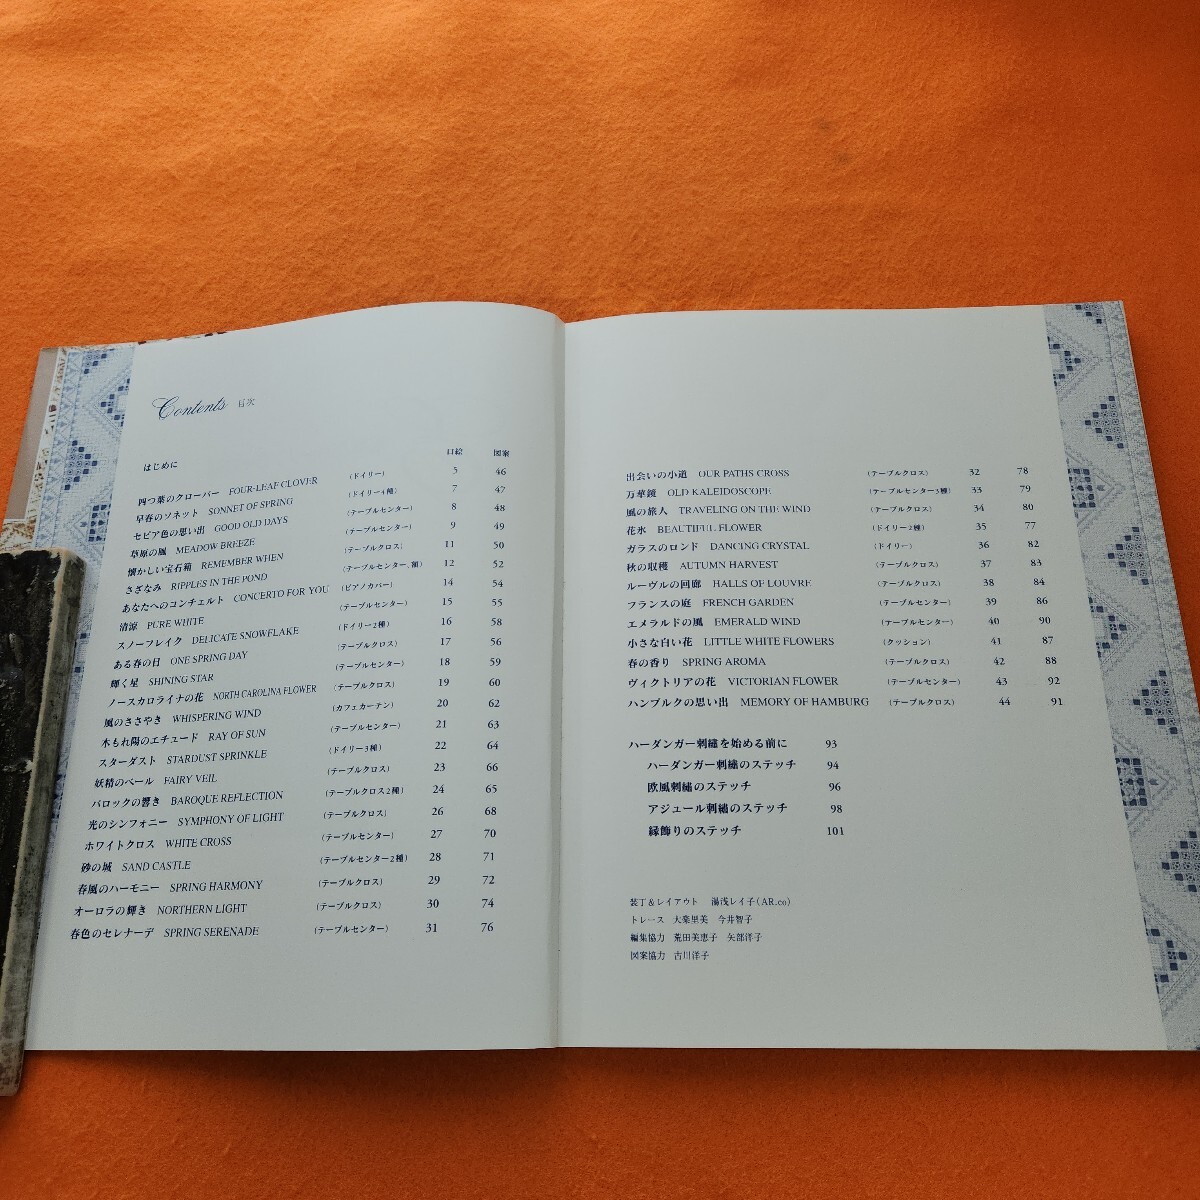 Contents 目次
口絵 図案
はじめに
四つ葉のクローバー FOUR-LEAF CLOVER (ドイリー) 5 46
早春のソネット SONNET OF SPRING (ドイリー4種) 7 47
セピア色の思い出 GOOD OLD DAYS (テーブルセンター) 8 48
草原の風 MEADOW BREEZE (テーブルセンター) 9 49
懐かしい宝石箱 REMEMBER WHEN (テーブルクロス) 11 50
さざなみ RIPPLES IN THE POND (テーブルセンター、額) 12 52
あなたへのコンチェルト CONCERTO FOR YOU (ピアノカバー) 14 54
清涼 PURE WHITE (テーブルセンター) 15 55
スノーフレイク DELICATE SNOWFLAKE (ドイリー2種) 16 58
ある春の日 ONE SPRING DAY (テーブルクロス) 17 56
輝く星 SHINING STAR (テーブルセンター) 18 59
ノースカロライナの花 NORTH CAROLINA FLOWER (テーブルクロス) 19 60
風のささやき WHISPERING WIND (カフェカーテン) 20 62
木もれ陽のエチュード RAY OF SUN (テーブルセンター) 21 63
スターダスト STARDUST SPRINKLE (ドイリー3種) 22 64
妖精のベール FAIRY VEIL (テーブルクロス) 23 66
バロックの響き BAROQUE REFLECTION (テーブルクロス2種) 24 65
光のシンフォニー SYMPHONY OF LIGHT (テーブルクロス) 26 68
ホワイトクロス WHITE CROSS (テーブルセンター) 27 70
砂の城 SAND CASTLE (テーブルセンター2種) 28 71
春風のハーモニー SPRING HARMONY (テーブルクロス) 29 72
オーロラの輝き NORTHERN LIGHT (テーブルクロス) 30 74
春色のセレナーデ SPRING SERENADE (テーブルセンター) 31 76
出会いの小道 OUR PATHS CROSS (テーブルクロス) 32 78
万華鏡 OLD KALEIDOSCOPE (テーブルセンター3種) 33 79
風の旅人 TRAVELING ON THE WIND (テーブルクロス) 34 80
花氷 BEAUTIFUL FLOWER (ドイリー2種) 35 77
ガラスのロンド DANCING CRYSTAL (ドイリー) 36 82
秋の収穫 AUTUMN HARVEST (テーブルクロス) 37 83
ルーヴルの回廊 HALLS OF LOUVRE (テーブルクロス) 38 84
フランスの庭 FRENCH GARDEN (テーブルセンター) 39 86
エメラルドの風 EMERALD WIND (テーブルセンター) 40 90
小さな白い花 LITTLE WHITE FLOWERS (クッション) 41 87
春の香り SPRING AROMA (テーブルクロス) 42 88
ヴィクトリアの花 VICTORIAN FLOWER (テーブルセンター) 43 92
ハンブルクの思い出 MEMORY OF HAMBURG (テーブルクロス) 44 91
ハーダンガー刺繡を始める前に 93
ハーダンガー刺繡のステッチ 94
欧風刺繡のステッチ 96
アジュール刺繡のステッチ 98
縁飾りのステッチ 101
装丁&レイアウト 湯浅レイ子(AR.co)
トレース 大楽里美 今井智子
編集協力 荒田美恵子 矢部洋子
図案協力 古川洋子